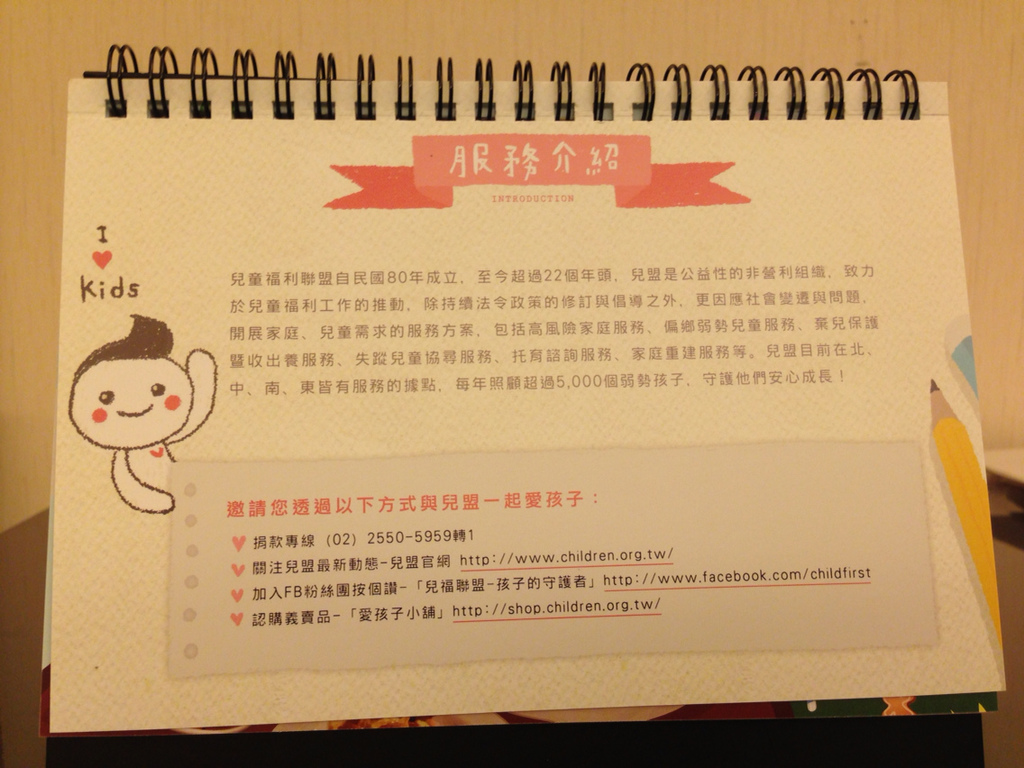 服務介紹
INTRODUCTION
I
Kids
兒童福利聯盟自民國80年成立，至今超過22個年頭，兒盟是公益性的非營利組織，致力
於兒童福利工作的推動，除持續法令政策的修訂與倡導之外，更因應社會變遷與問題，
開展家庭、兒童需求的服務方案，包括高風險家庭服務、偏鄉弱勢兒童服務、棄兒保護
暨收出養服務、失蹤兒童協尋服務、托育諮詢服務、家庭重建服務等。兒盟目前在北、
中、南、東皆有服務的據點，每年照顧超過5,000個弱勢孩子，守護他們安心成長！
邀請您透過以下方式與兒盟一起愛孩子：
捐款專線（02）2550-5959轉1
關注兒盟最新動態-兒盟官網 http://www.children.org.tw/
加入FB粉絲團按個讚-「兒福聯盟-孩子的守護者」http://www.facebook.com/childfirst
認購義賣品-「愛孩子小舖」http://shop.children.org.tw/